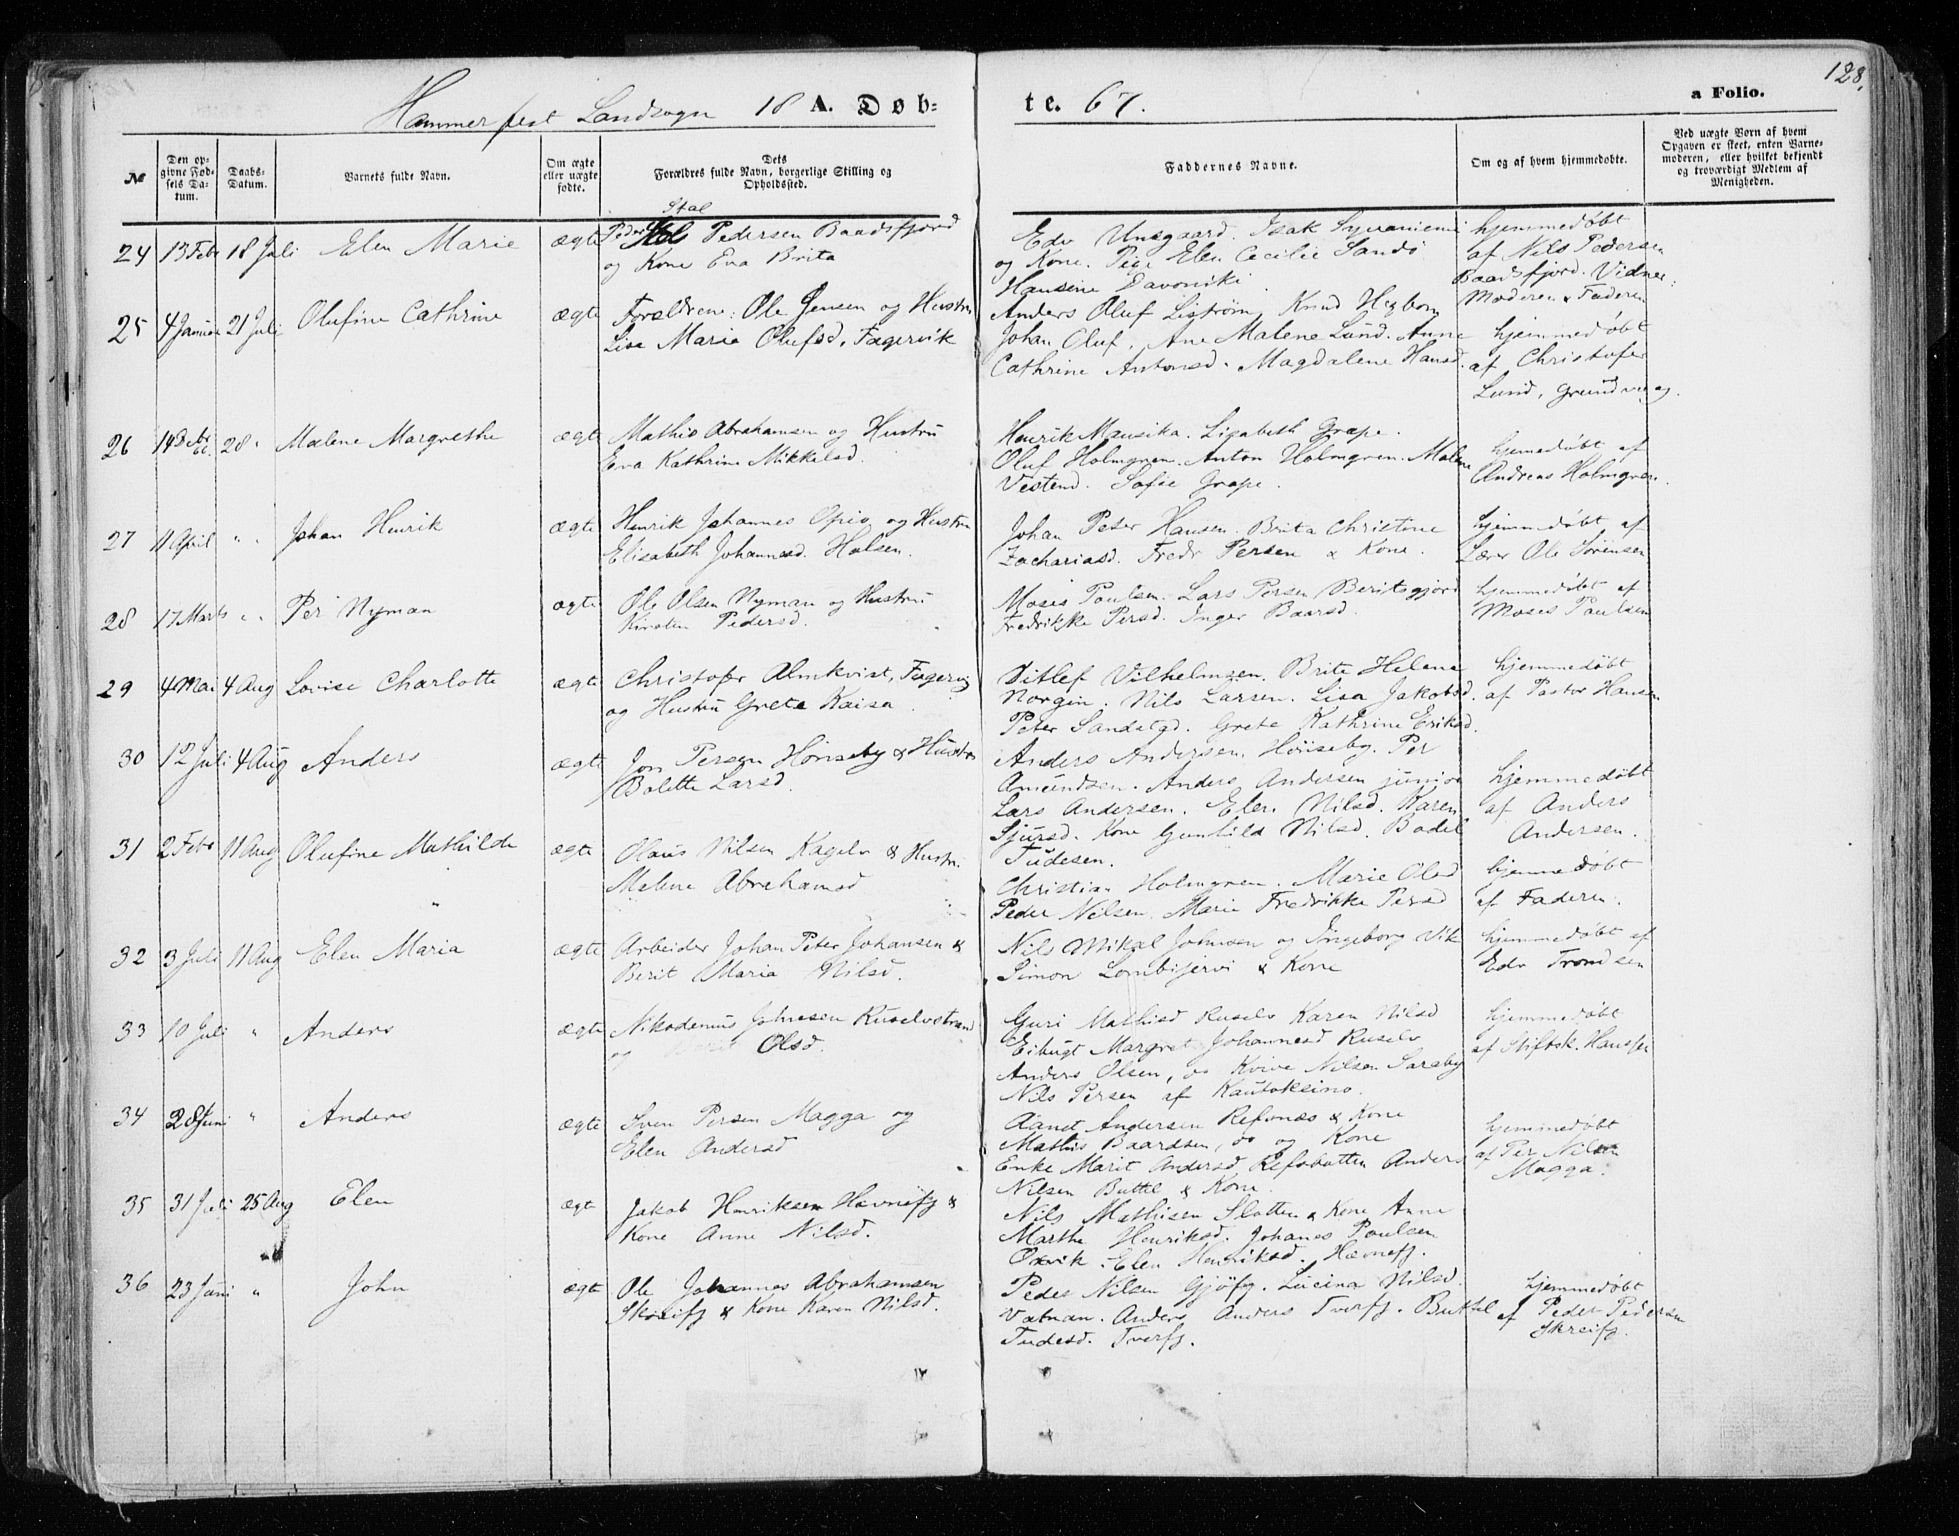 128.
Hammerfest Landsogn 18 A. Døb-te. 67.
a Folio.
№
Den opgivne Fødsels Datum.
Daabs-Datum.
Barnets fulde Navn.
Om ægte eller uægte fødte.
Dets Forældres fulde Navn, borgerlige Stilling og Opholdssted.
Faddernes Navne.
Om og af hvem hjemmedøbte.
Ved uægte Børn af hvem Opgaven er skeet, enten Barnemoderen, eller hvilket bekjendt og troværdigt Medlem af Menigheden.
24 13 Febr 18 Juli Elen Marie ægte Pedersen Baadsfjord
og Kone Eva Brita
Edv Unsgaard. Isak
og Kone. Pige Elen Cecilie Sandø
Hansine
hjemmedøbt
af Nils Pedersen
Baadsfjord. Vidner:
Moderen & Faderen
25 4 Januar 21 Juli Olufine Cathrine ægte Forældrene: Ole Jensen og Hustru
Lisa Maria Olufsd, Fagervik
Anders Oluf Liström Knud Hegborn
Johan Oluf, Ane Malene Lund. Anne
Cathrine Antonsd. Magdalene Hansd.
hjemmedøbt
af Christofer
Lund, Grundvaag.
26 28 " Malene Margrethe ægte Mathis Abrahamsen og Hustru
Eva Kathrine Mikkelsd.
Henrik Mausika. Lisabeth Grape.
Oluf Holmgren. Anton Holmgren. Malene
Vestend. Sofie Grape.
hjemmedøbt af
Andreas Holmgren.
27 11 April " " Johan Henrik ægte Henrik Johannes Opio og Hustru
Elisabeth Johannesd. Halsen.
Johan Peter Hansen. Brita Christine
Zachariasd. Fredr Persen & Kone.
hjemmedøbt af
Lærer Ole Sörensen
28 17 Marts " " Per Nyman ægte Ole Olsen Nyman og Hustru
Kirsten Pedersd.
Moses Paulsen. Lars Persen Beritsgjord
Fredrikke Persd. Inger Baarsd.
hjemmedøbt af
Moses Paulsen
29 4 Mai 4 Aug Lovise Charlotte ægte Christofer Almkvist, Fagervig
og Hustru Grete Kaisa.
Ditlef Vilhelmsen. Brite Helene
Norgin. Nils Larsen. Lisa Jakobsd.
Peter Sandstgd. Grete Kathrine Eriksd.
hjemmedøbt
af Pastor Hansen
30 12 Juli 4 Aug Anders ægte Jon Persen Hönseby & Hustru
Bolette Larsd.
Anders Andersen. Hönseby. Per
Amundsen. Anders Andersen junior
Lars Andersen. Elen Nilsd. Karen
Sjursd. Kone Gunhild Nilsd. Bodel
Tudesen.
hjemmedøbt
af Anders
Andersen.
31 2 Febr 11 Aug Olufine Mathilde ægte Olaus Nilsen Kagelv & Hustru
Malene Abrahamsd
Christian Holmgren. Marie Olsd
Peder Nilsen. Marie Fredrikke Persd
hjemmedøbt
af Faderen.
32 3 Juli 11 Aug Elen Maria ægte Arbeider Johan Peter Johansen &
Berit Maria Nilsd.
Nils Mikal Johnsen og Ingeborg Vik
Simon Lombijervi & Kone
hjemmedøbt af
Edv Trondsen
33 10 Juli " Anders ægte Nikodemus Johnsen Ruselvstrand
og Olsd.
Guri Mathisd Ruselv Karen Nilsd
Eibugt Margret Johannesd Ruselv
Anders Olsen, do Kvive Nilsen Saraby
Nils Persen af Kautokeino.
hjemmedøbt
af Stiftsk.
34 28 Juni " Anders ægte Sven Persen Magga og
Elen Andersd
Aanet Andersen Refsnæs & Kone
Mathis Baardsen, do og Kone
Enke Marit Andersd Refsbotten Anders
Nilsen Buttel & Kone.
hjemmedøbt
af Per Nilsen
Magga.
35 31 Juli 25 Aug Elen ægte Jakob Henriksen Havnefj &
Kone Anne Nilsd.
Nils Mathisen Slotten & Kone Anne
Marthe Henriksd. Johanes Paulsen
Oxvik. Elen Henriksd. Havnefj.
36 23 Juni " John ægte Ole Johannes Abrahamsen
Skreifj & Kone Karen Nilsd.
Peder Nilsen Gjøfj. Lucina Nilsd.
Vatnan. Anders Anders Tverfj. Buttel
Tudesd. Tverfj.
hjemmedøbt
af Peder Pedersen
Skreifj.